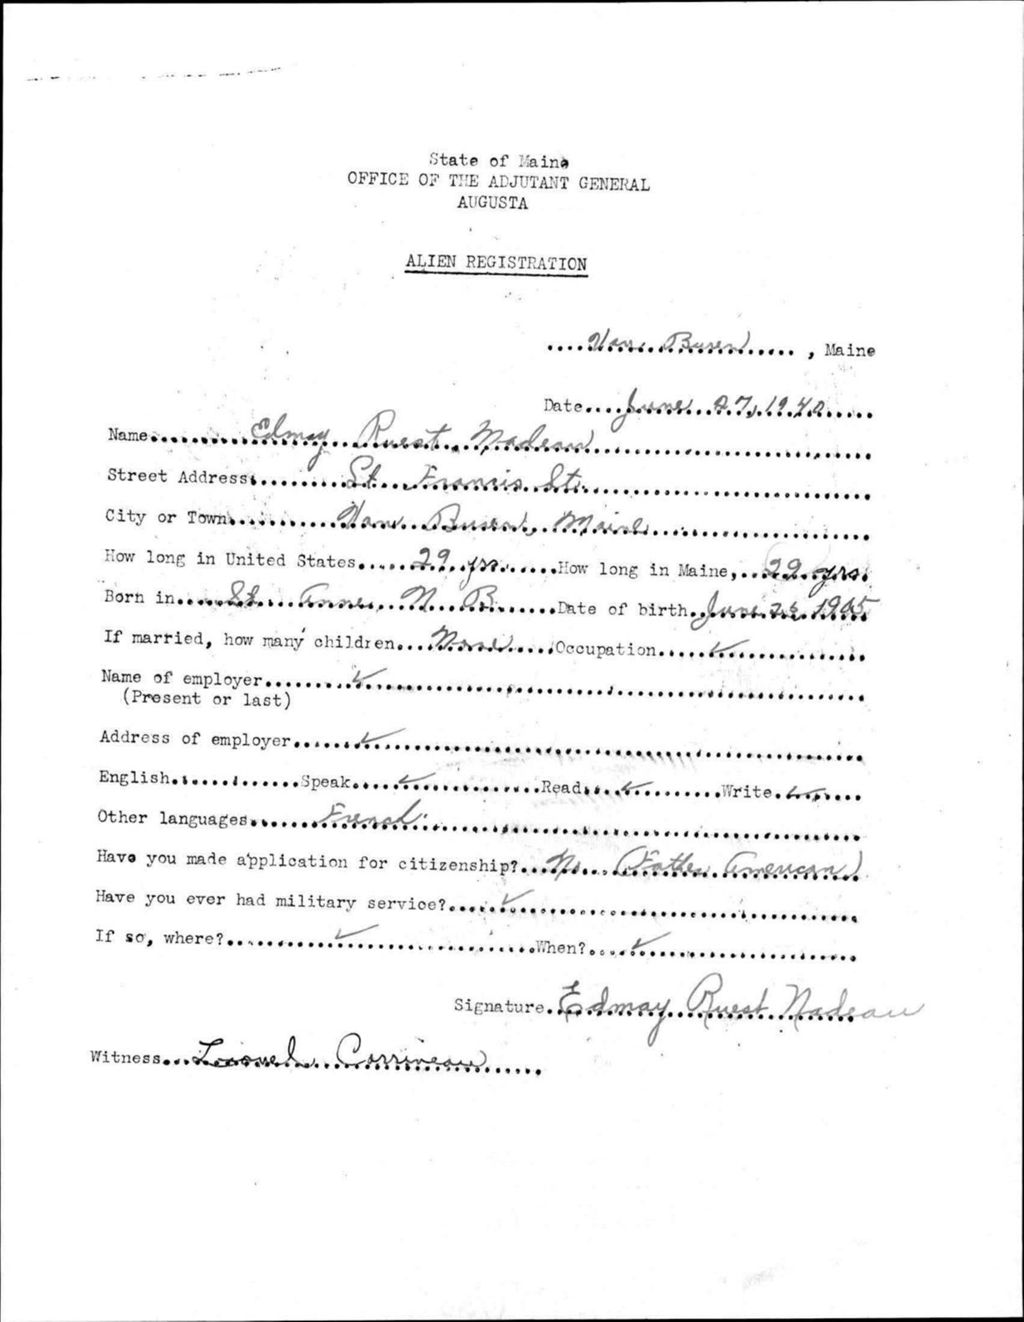 State of Maine
OFFICE OF THE ADJUTANT GENERAL
AUGUSTA
ALIEN REGISTRATION
Van Buren, Maine
Date June 27, 1940
Name Edmay Ruest Nadeau
Street Address St. Francis St.
City or Town Van Buren, Maine
How long in United States 29 yrs. How long in Maine, 29 yrs.
Born in St. Anne, N. B. Date of birth June 1905
If married, how many children None Occupation ✓
Name of employer ✓
(Present or last)
Address of employer ✓
English Speak ✓ Read ✓ Write ✓
Other languages French
Have you made application for citizenship? No (Father American)
Have you ever had military service? ✓
If so, where? ✓ When? ✓
Signature Edmay Ruest Nadeau
Witness Lionel Corriveau